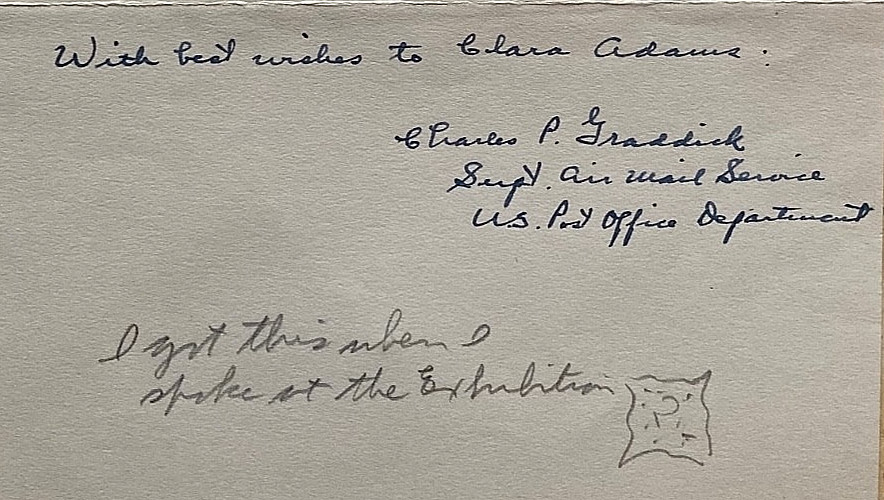 With best wishes to Clara Adams.
Charles P. Graddick
Supt. Air Mail Service
U.S. Post Office Department
I got this when I
spoke at the Exhibition